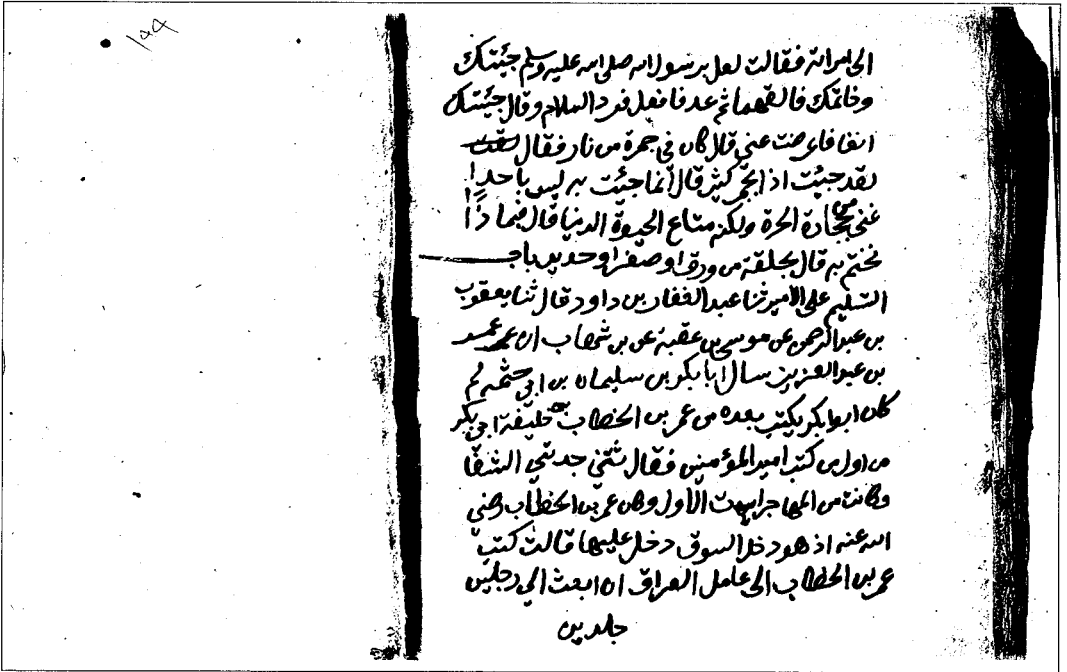 الى امراته فقالت لعل برسول الله صلى الله عليه وسلم جئيتك
وخاتمك فالقهما ثم عد فافعل فرد السلام وقال جئيتك
انفا فاعرضت عني قال كان في جمرة من نار فقال
لقد جئيت اذا بجمر كثير قال انما جئيت به ليس باحدا
غنى من حجارة الحرة ولكنه متاع الحيوة الدنيا قال فبماذا
نختم به قال بحلقة من ورق او صفر او حديد باب
التسليم على الامير ثنا عبد الغفار بن داود قال ثنا يعقوب
بن عبد الرحمن عن موسى بن عقبة عن بن شهاب ان عمر
بن عبد العزيز سال ابا بكر بن سليمان بن ابي حثمه لم
كان ابوابكر يكتب بعده من عمر بن الخطاب خليفة ابي بكر
من اول من كتب امير المؤمنين فقال ثتني جدتي الشفا
وكانت من المهاجرات الاول وكان عمر بن الخطاب رضي
الله عنه اذ هو دخل السوق دخل عليها قالت كتب
عمر بن الخطاب الى عامل العراق ان ابعث الي رجلين
جلدين